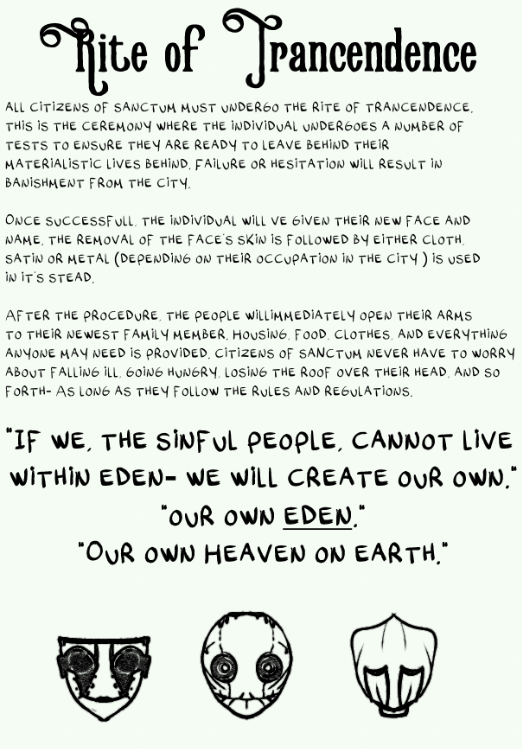 Rite of Trancendence
ALL CITIZENS OF SANCTUM MUST UNDERGO THE RITE OF TRANCENDENCE.
THIS IS THE CEREMONY WHERE THE INDIVIDUAL UNDERGOES A NUMBER OF
TESTS TO ENSURE THEY ARE READY TO LEAVE BEHIND THEIR
MATERIALISTIC LIVES BEHIND. FAILURE OR HESITATION WILL RESULT IN
BANISHMENT FROM THE CITY.
ONCE SUCCESSFULL, THE INDIVIDUAL WILL VE GIVEN THEIR NEW FACE AND
NAME. THE REMOVAL OF THE FACE'S SKIN IS FOLLOWED BY EITHER CLOTH,
SATIN OR METAL (DEPENDING ON THEIR OCCUPATION IN THE CITY ) IS USED
IN IT'S STEAD.
AFTER THE PROCEDURE, THE PEOPLE WILLIMMEDIATELY OPEN THEIR ARMS
TO THEIR NEWEST FAMILY MEMBER. HOUSING, FOOD, CLOTHES, AND EVERYTHING
ANYONE MAY NEED IS PROVIDED. CITIZENS OF SANCTUM NEVER HAVE TO WORRY
ABOUT FALLING ILL, GOING HUNGRY, LOSING THE ROOF OVER THEIR HEAD, AND SO
FORTH- AS LONG AS THEY FOLLOW THE RULES AND REGULATIONS.
"IF WE, THE SINFUL PEOPLE, CANNOT LIVE
WITHIN EDEN- WE WILL CREATE OUR OWN."
"OUR OWN EDEN."
"OUR OWN HEAVEN ON EARTH."